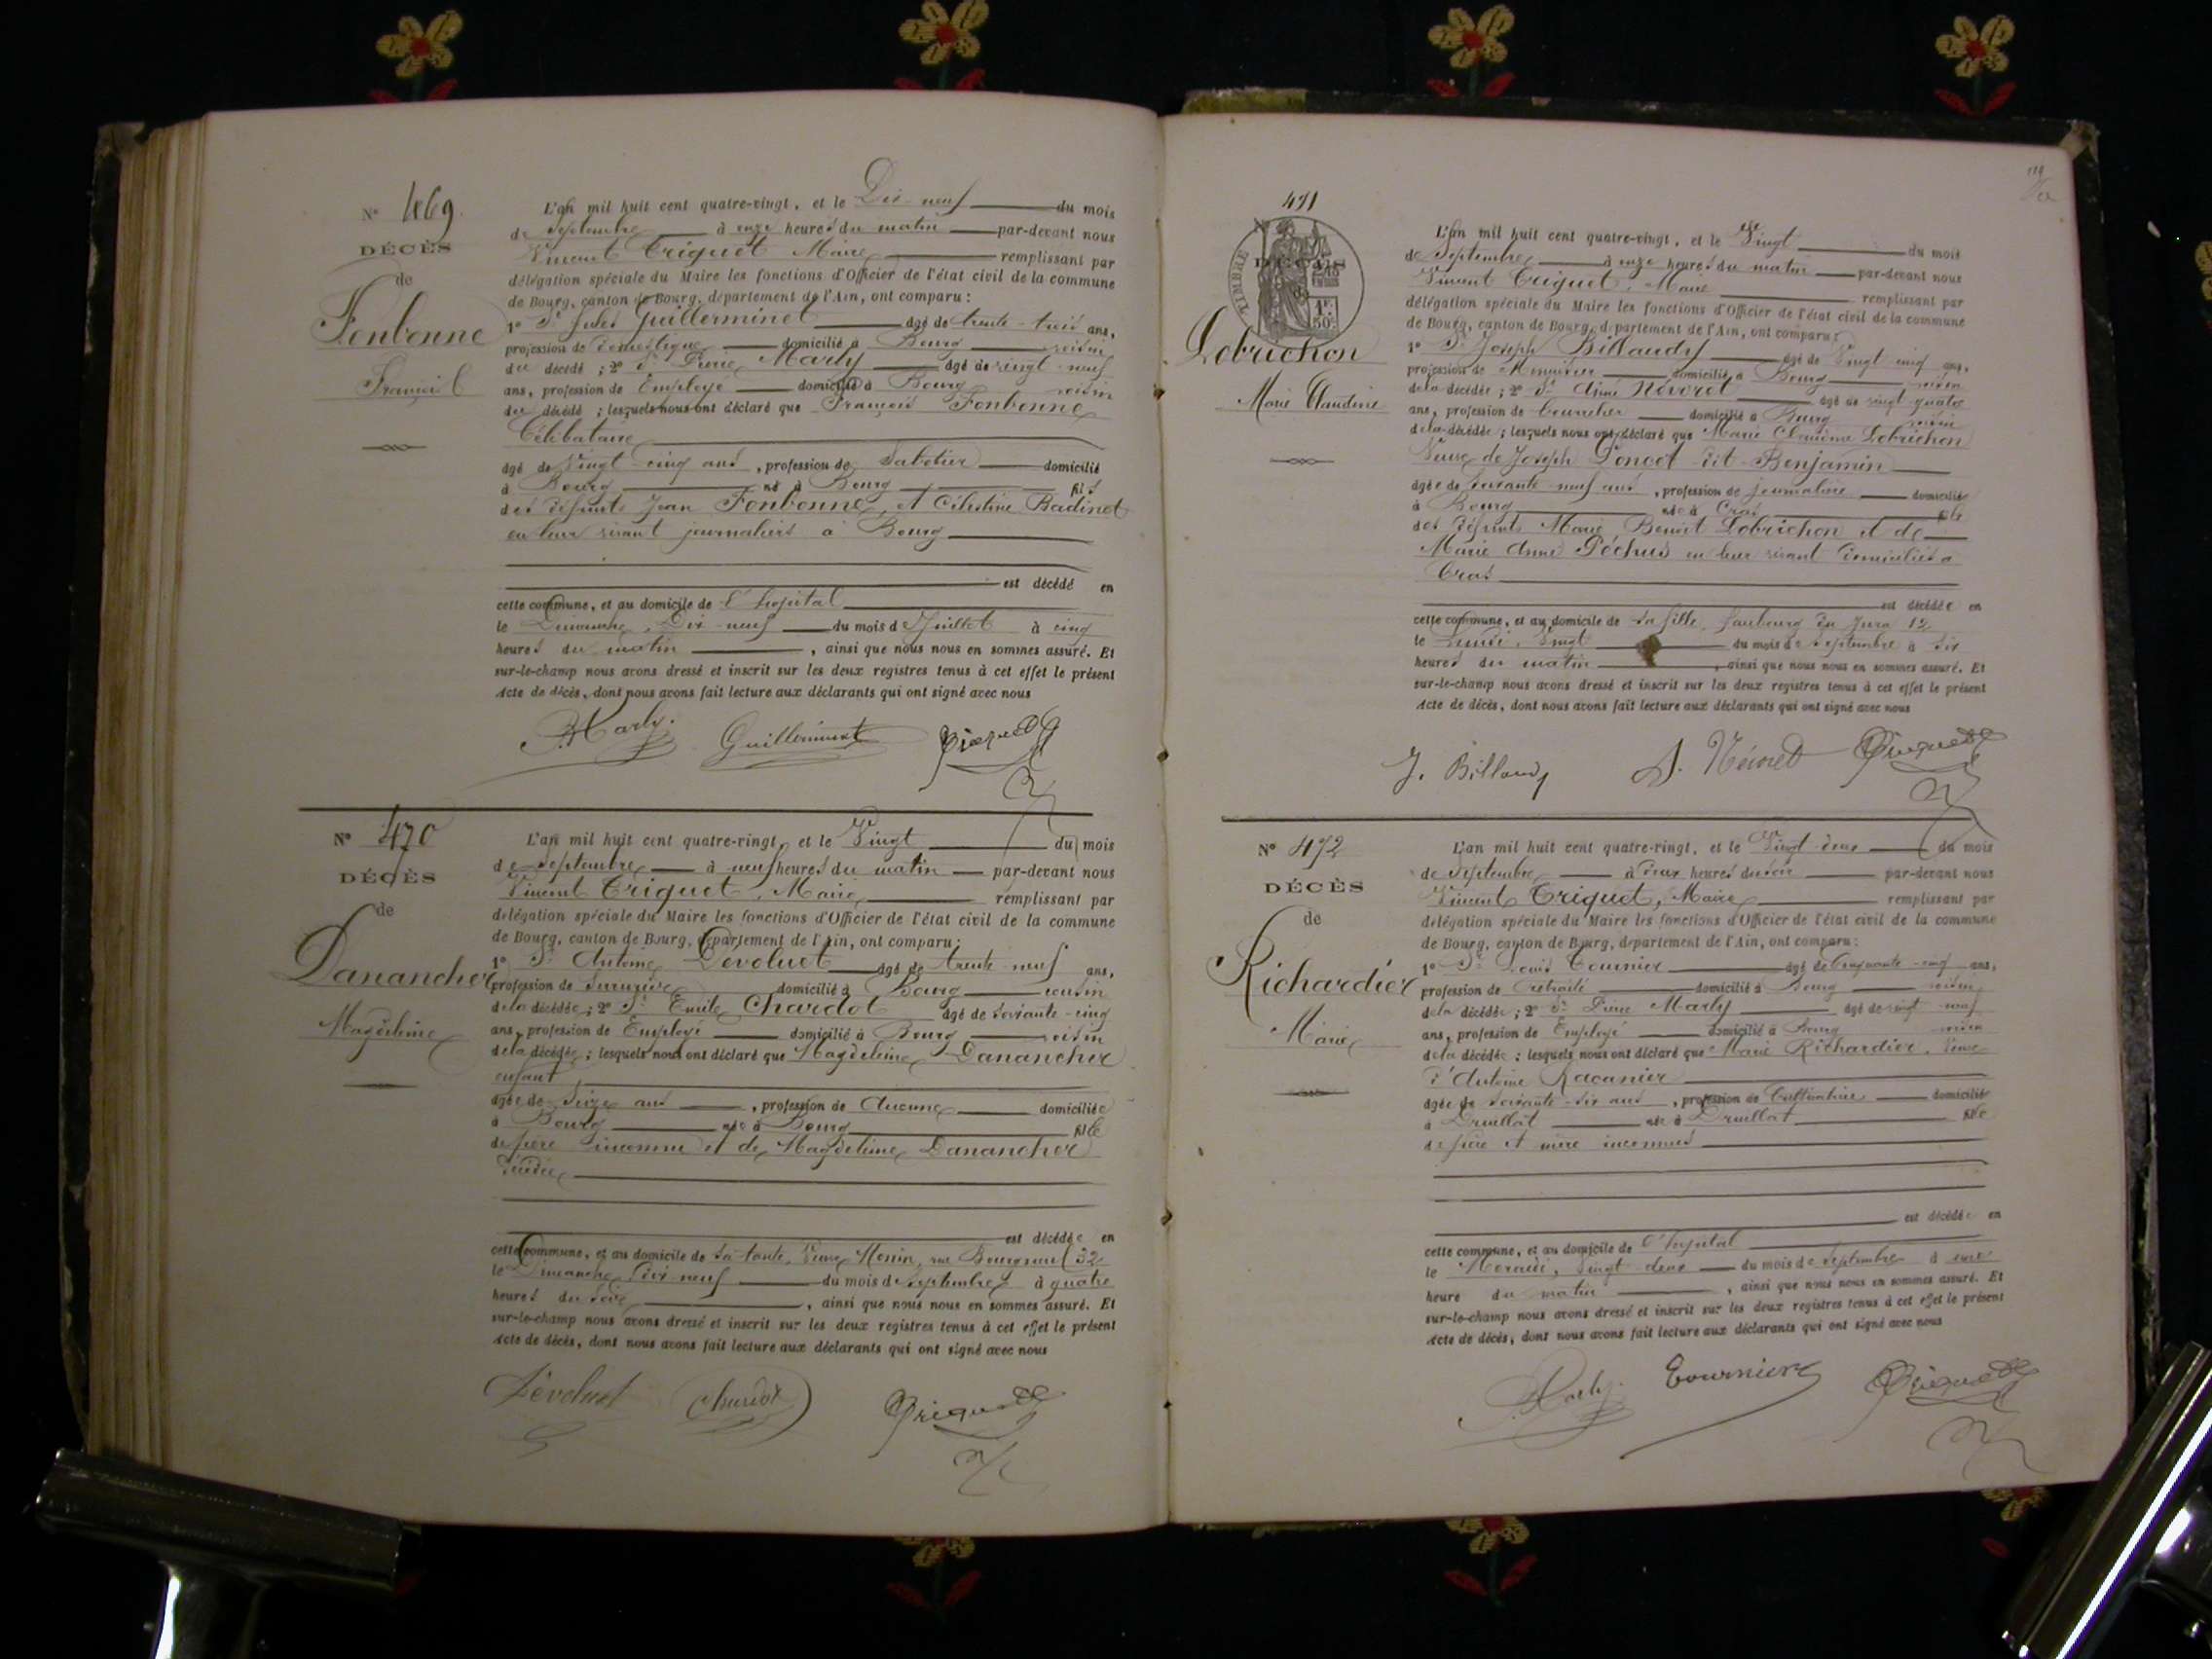 N° 469.
DÉCÈS
de
Fonbonne
François
L'an mil huit cent quatre-vingt, et le Dix-neuf du mois
de Septembre à onze heures du matin par-devant nous
Vincent Triquet Maire remplissant par
délégation spéciale du Maire les fonctions d'Officier de l'état civil de la commune
de Bourg, canton de Bourg, département de l'Ain, ont comparu :
1° Sr Jules Guillerminet agé de trente-trois ans,
profession de domestique domicilié à Bourg voisin
du décédé ; 2° Sr Pierre Marly agé de vingt-neuf
ans, profession de Employé domicilié à Bourg voisin
du décédé ; lesquels nous ont déclaré que François Fonbonne
Célibataire
agé de Vingt-cinq ans, profession de Sabotier domicilié
à Bourg né à Bourg fils
des défunts Jean Fonbonne, et Célestine Badinot
en leur vivant journaliers à Bourg
est décédé en
cette commune, et au domicile de l'hopital
le Dimanche, Dix-neuf du mois d Juillet à cinq
heures du matin, ainsi que nous nous en sommes assuré. Et
sur-le-champ nous avons dressé et inscrit sur les deux registres tenus à cet effet le présent
Acte de décès, dont nous avons fait lecture aux déclarants qui ont signé avec nous
P. Marly. Guillerminet Triquet
N° 470
DÉCÈS
de
Danancher
Magdeleine
L'an mil huit cent quatre-vingt, et le Vingt du mois
de Septembre à neuf heures du matin par-devant nous
Vincent Triquet, Maire remplissant par
délégation spéciale du Maire les fonctions d'Officier de l'état civil de la commune
de Bourg, canton de Bourg, département de l'Ain, ont comparu :
1° Sr Antoine Dévoluet agé de trente-neuf ans,
profession de Serrurier domicilié à Bourg cousin
de la décédée ; 2° Sr Emile Chardot agé de soixante-cinq
ans, profession de Employé domicilié à Bourg voisin
de la décédée ; lesquels nous ont déclaré que Magdeleine Danancher
enfant
agée de Seize ans, profession de Aucune domiciliée
à Bourg née à Bourg fille
de père inconnu et de Magdeleine Danancher
décédée
est décédée en
cette commune, et au domicile de sa tante, Veuve Monin, rue Bourgneuf 32
le Dimanche, dix neuf du mois de Septembre à quatre
heures du soir, ainsi que nous nous en sommes assuré. Et
sur-le-champ nous avons dressé et inscrit sur les deux registres tenus à cet effet le présent
Acte de décès, dont nous avons fait lecture aux déclarants qui ont signé avec nous
Dévoluet Chardot Triquet
471
TIMBRE
DÉCÈS
1F. 50c.
Lobrichon
Marie Claudine
L'an mil huit cent quatre-vingt, et le Vingt du mois
de Septembre à onze heures du matin par-devant nous
Vincent Triquet, Maire remplissant par
délégation spéciale du Maire les fonctions d'Officier de l'état civil de la commune
de Bourg, canton de Bourg, département de l'Ain, ont comparu :
1° Sr Joseph Billaudy agé de Vingt cinq ans,
profession de Menuisier domicilié à Bourg voisin
de la décédée ; 2° Sr Aimé Névoret agé de vingt-quatre
ans, profession de domicilié à Bourg voisin
de la décédée ; lesquels nous ont déclaré que Marie Claudine Lobrichon
Veuve de Joseph Poncet dit Benjamin
agée de soixante-neuf ans, profession de journalière domiciliée
à Bourg née à Cras fille
des défunts Marie Benoit Lobrichon et de
Marie Anne Péchus en leur vivant domiciliés à
Cras
est décédée en
cette commune, et au domicile de sa fille, faubourg du Jura 12
le Lundi, Vingt du mois de Septembre à six
heures du matin, ainsi que nous nous en sommes assuré. Et
sur-le-champ nous avons dressé et inscrit sur les deux registres tenus à cet effet le présent
Acte de décès, dont nous avons fait lecture aux déclarants qui ont signé avec nous
J. Billaudy A. Névoret Triquet
N° 472
DÉCÈS
de
Richardier
Marie
L'an mil huit cent quatre-vingt, et le Vingt-deux du mois
de Septembre à deux heures du soir par-devant nous
Vincent Triquet, Maire remplissant par
délégation spéciale du Maire les fonctions d'Officier de l'état civil de la commune
de Bourg, canton de Bourg, département de l'Ain, ont comparu :
1° Sr Louis Tournier agé de Cinquante-cinq ans,
profession de retraité domicilié à Bourg voisin
de la décédée ; 2° Sr Pierre Marly agé de vingt neuf
ans, profession de Employé domicilié à Bourg voisin
de la décédée ; lesquels nous ont déclaré que Marie Richardier, Veuve
d'Antoine Racanier
agée de soixante-six ans, profession de Cultivatrice domiciliée
à Druillat née à Druillat fille
de père et mère inconnus
est décédée en
cette commune, et au domicile de l'hopital
le Mercredi, Vingt deux du mois de Septembre à une
heure du matin, ainsi que nous nous en sommes assuré. Et
sur-le-champ nous avons dressé et inscrit sur les deux registres tenus à cet effet le présent
Acte de décès, dont nous avons fait lecture aux déclarants qui ont signé avec nous
P. Marly. Tournier Triquet